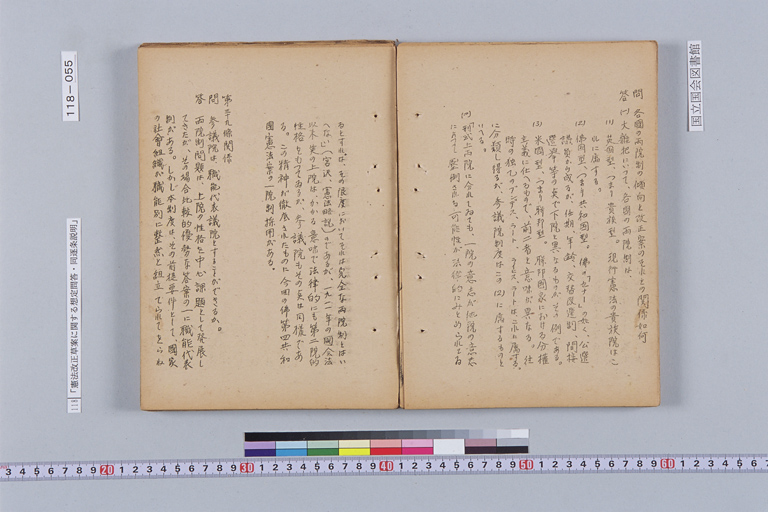 国立国会図書館
問 各國の両院制の傾向と改正案のそれとの関係如何
答 (一) 大雑把にいつて、各国の両院制は、
(1) 英国型、つまり貴族型。現行憲法の貴族院はこ
れに属する。
(2) 佛国型、つまり共和国型。佛の「セナー」の如く、公選
議員から成るが、任期、年齢、交替改選制、間接
選挙等の点で下院と異なるものがその例である。
(3) 米国型、つまり聯邦型。聯邦国家における分權
主義に仕へるもので、前二者と意味が異なる。往
時の独乙の
に分類し得るが、参議院制度はこの(2)に属するものと
いへる。
(二) 形式上両院に分れてゐても、一院の意志が他院の意志
によつて圧倒される可能性が法律的にみとめられてゐ
るとすれば、その限度においてそれは完全な両院制とはい
へない(宮沢、憲法略説)のであるが、一九一一年の國会法
以来英の上院は、かかる意味で法律的にも第二院的
性格をもつてゐるが、参議院もその点は同様であ
る。この精神が徹底されたものに今回の佛第四共和
國憲法案の一院制採用がある。
第三十九條関係
問 参議院は、職能代表議院とすることができるか。
答 両院制問題は、上院の性格を中心課題として発展し
てきたが、その場合比較的優勢な答案の一に職能代表
制がある。しかし本制度は、その前提要件として、國家
の社会組織が職能別に整然と組立てられてをらね
118-055
118 「憲法改正草案に関する想定問答・同逐条説明」